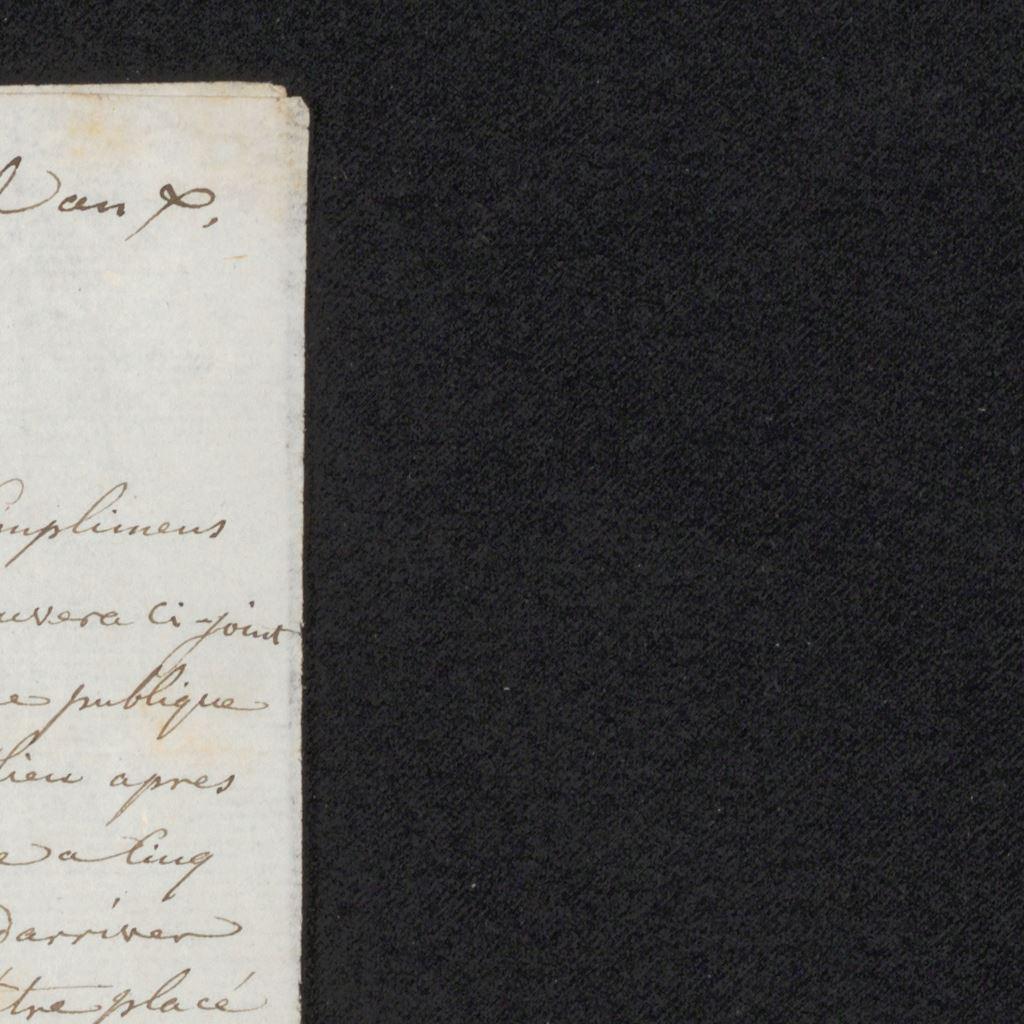 Van X,
omplimens
uvera ci-joint
e publique
lieu apres
e a Cinq
Darriver
être placé